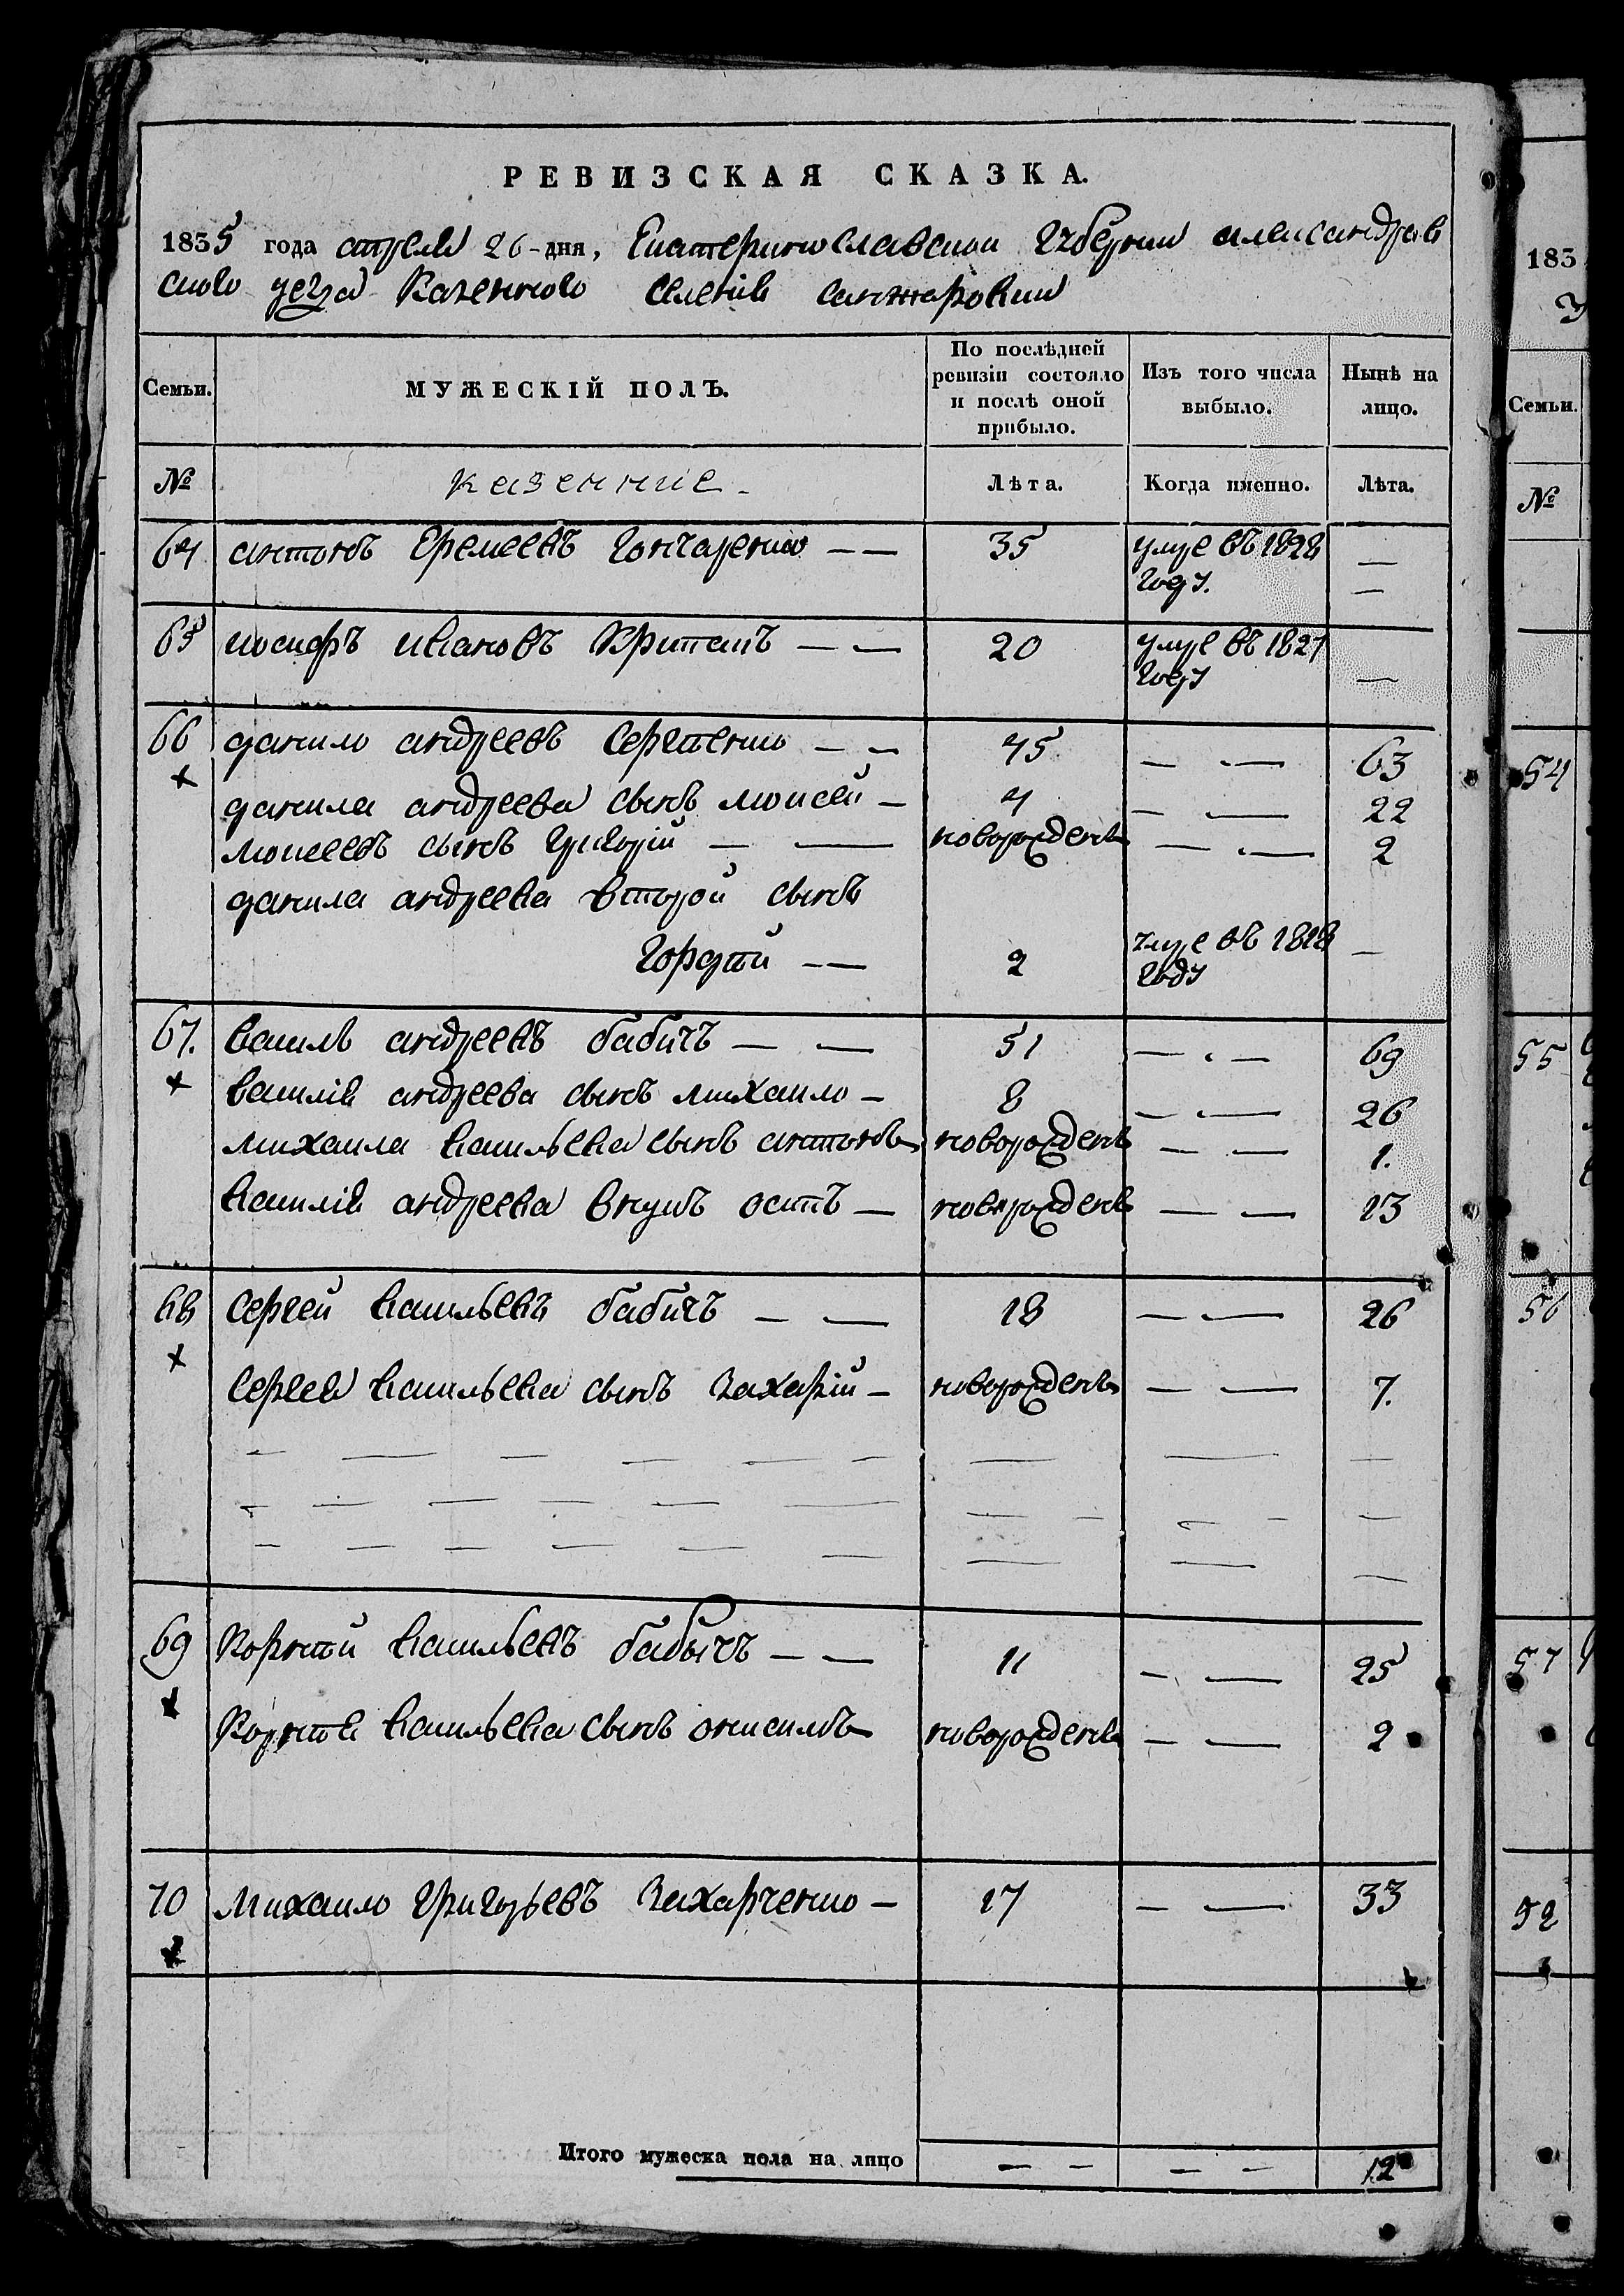 РЕВИЗСКАЯ СКАЗКА.
1835 года апреля 26-дня, Екатеринославской губернии александров
скаго уезда Казенного селенія санжаровки
Семьи. МУЖЕСКІЙ ПОЛЪ. По послѣдней ревизіи состояло и послѣ оной прибыло. Изъ того числа выбыло. Нынѣ на лицо.
№ казенние - Лѣта. Когда именно. Лѣта.
64 антонъ Еремеевъ Гончаренко — — 35 умре въ 1828 году. —
65 иосифъ ивановъ — — 20 умре въ 1827 году —
66 данило андреевъ Сергиенко — — 45 — — 63
данила андреева сынъ моисей — 4 — — 22
моисеевъ сынъ григорій — — новорожденъ — — 2
данила андреева второй сынъ
Гордѣй — — 2 умре въ 1818 году —
67. василь андреевъ бабичъ — — 51 — — 69
василія андреева сынъ михаило — 8 — — 26
михаила васильева сынъ антонъ новорожденъ — — 1.
василія андреева внукъ — новорожденъ — — 13
68 Сергей васильевъ бабичъ — — 18 — — 26
Сергея васильева сынъ захарій — новорожденъ — — 7.
69 Корнѣй васильевъ бабычъ — — 11 — — 25
Корнѣя васильева сынъ онисимъ новорожденъ — — 2
70 михаило григорьевъ Захарченко — 17 — — 33
Итого мужеска пола на лицо — — — — 12
183
Семьи.
№
54
55
56
57